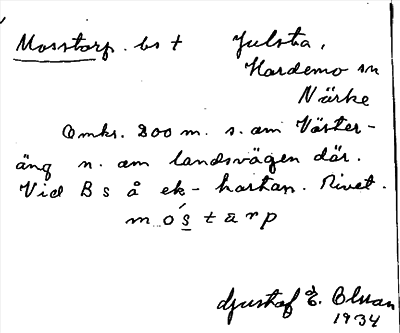 Mosstorp. bs t Julsta,
Hardemo sn
Närke
Omkr. 800 m. s. om Väster-
äng n. om landsvägen där.
Vid B s å ek-kartan. Rivet.
m ó s t a r p
Gustaf E. Olsson
1934